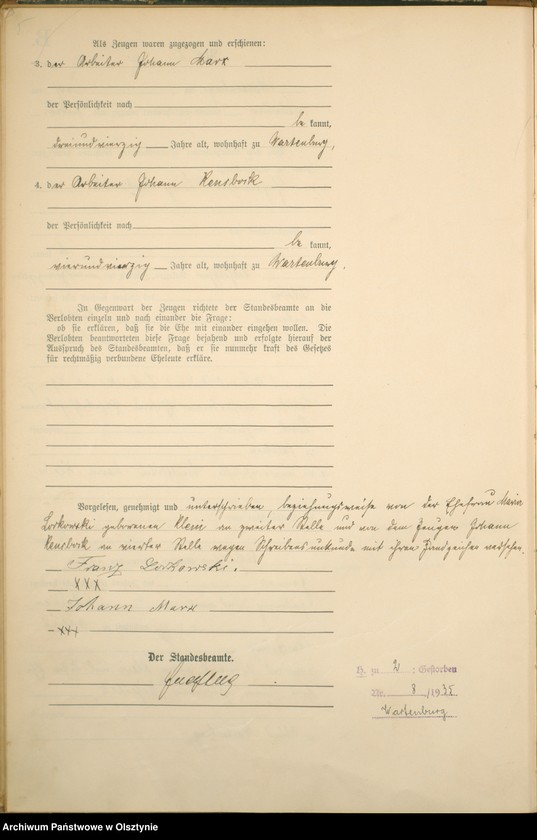 Als Zeugen waren zugezogen und erschienen:
3. der Arbeiter Johann Marx
der Persönlichkeit nach
be kannt,
dreiundvierzig Jahre alt, wohnhaft zu Wartenburg,
4. der Arbeiter Johann Rensbock
der Persönlichkeit nach
be kannt,
vierundvierzig Jahre alt, wohnhaft zu Wartenburg.
In Gegenwart der Zeugen richtete der Standesbeamte an die
Verlobten einzeln und nach einander die Frage:
ob sie erklären, daß sie die Ehe mit einander eingehen wollen. Die
Verlobten beantworteten diese Frage bejahend und erfolgte hierauf der
Ausspruch des Standesbeamten, daß er sie nunmehr kraft des Gesetzes
für rechtmäßig verbundene Eheleute erkläre.
Vorgelesen, genehmigt und unterschrieben, beziehungsweise von der Ehefrau Maria
Lorkowski geborenen Klein an zweiter Stelle und von dem Zeugen Johann
Rensbock an vierter Stelle wegen Schreibensunkunde mit ihren Handzeichen versehen.
Franz Lorkowski.
XXX
Johann Marx
XXX
Der Standesbeamte.
H. zu 2 : Gestorben
Nr. 8 /1935
Wartenburg
Archiwum Państwowe w Olsztynie